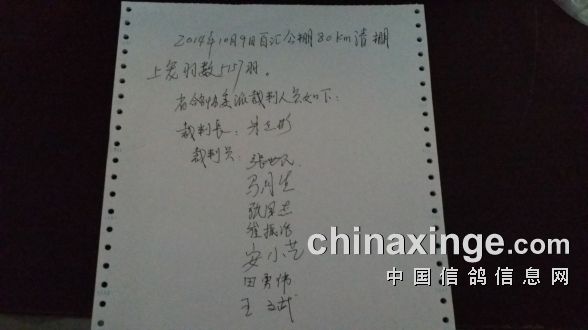 2014年10月9日百汇公棚80km清棚
上笼羽数5157羽。
省鸽协委派裁判人员如下:
裁判长:
裁判员: 张世民
安小艺
田勇伟
王立武
chinaxinge.com
中国信鸽信息网